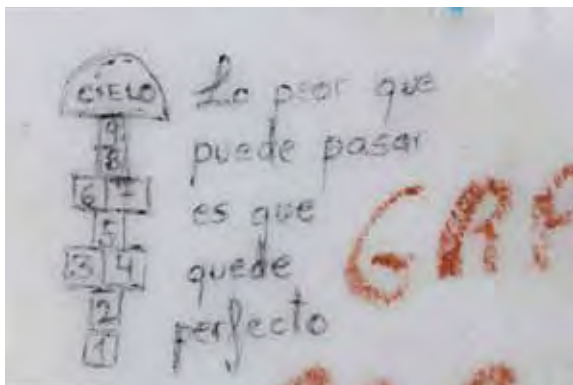 CIELO
9
8
6 7
5
3 4
2
1
Lo peor que
puede pasar
es que
quede
perfecto